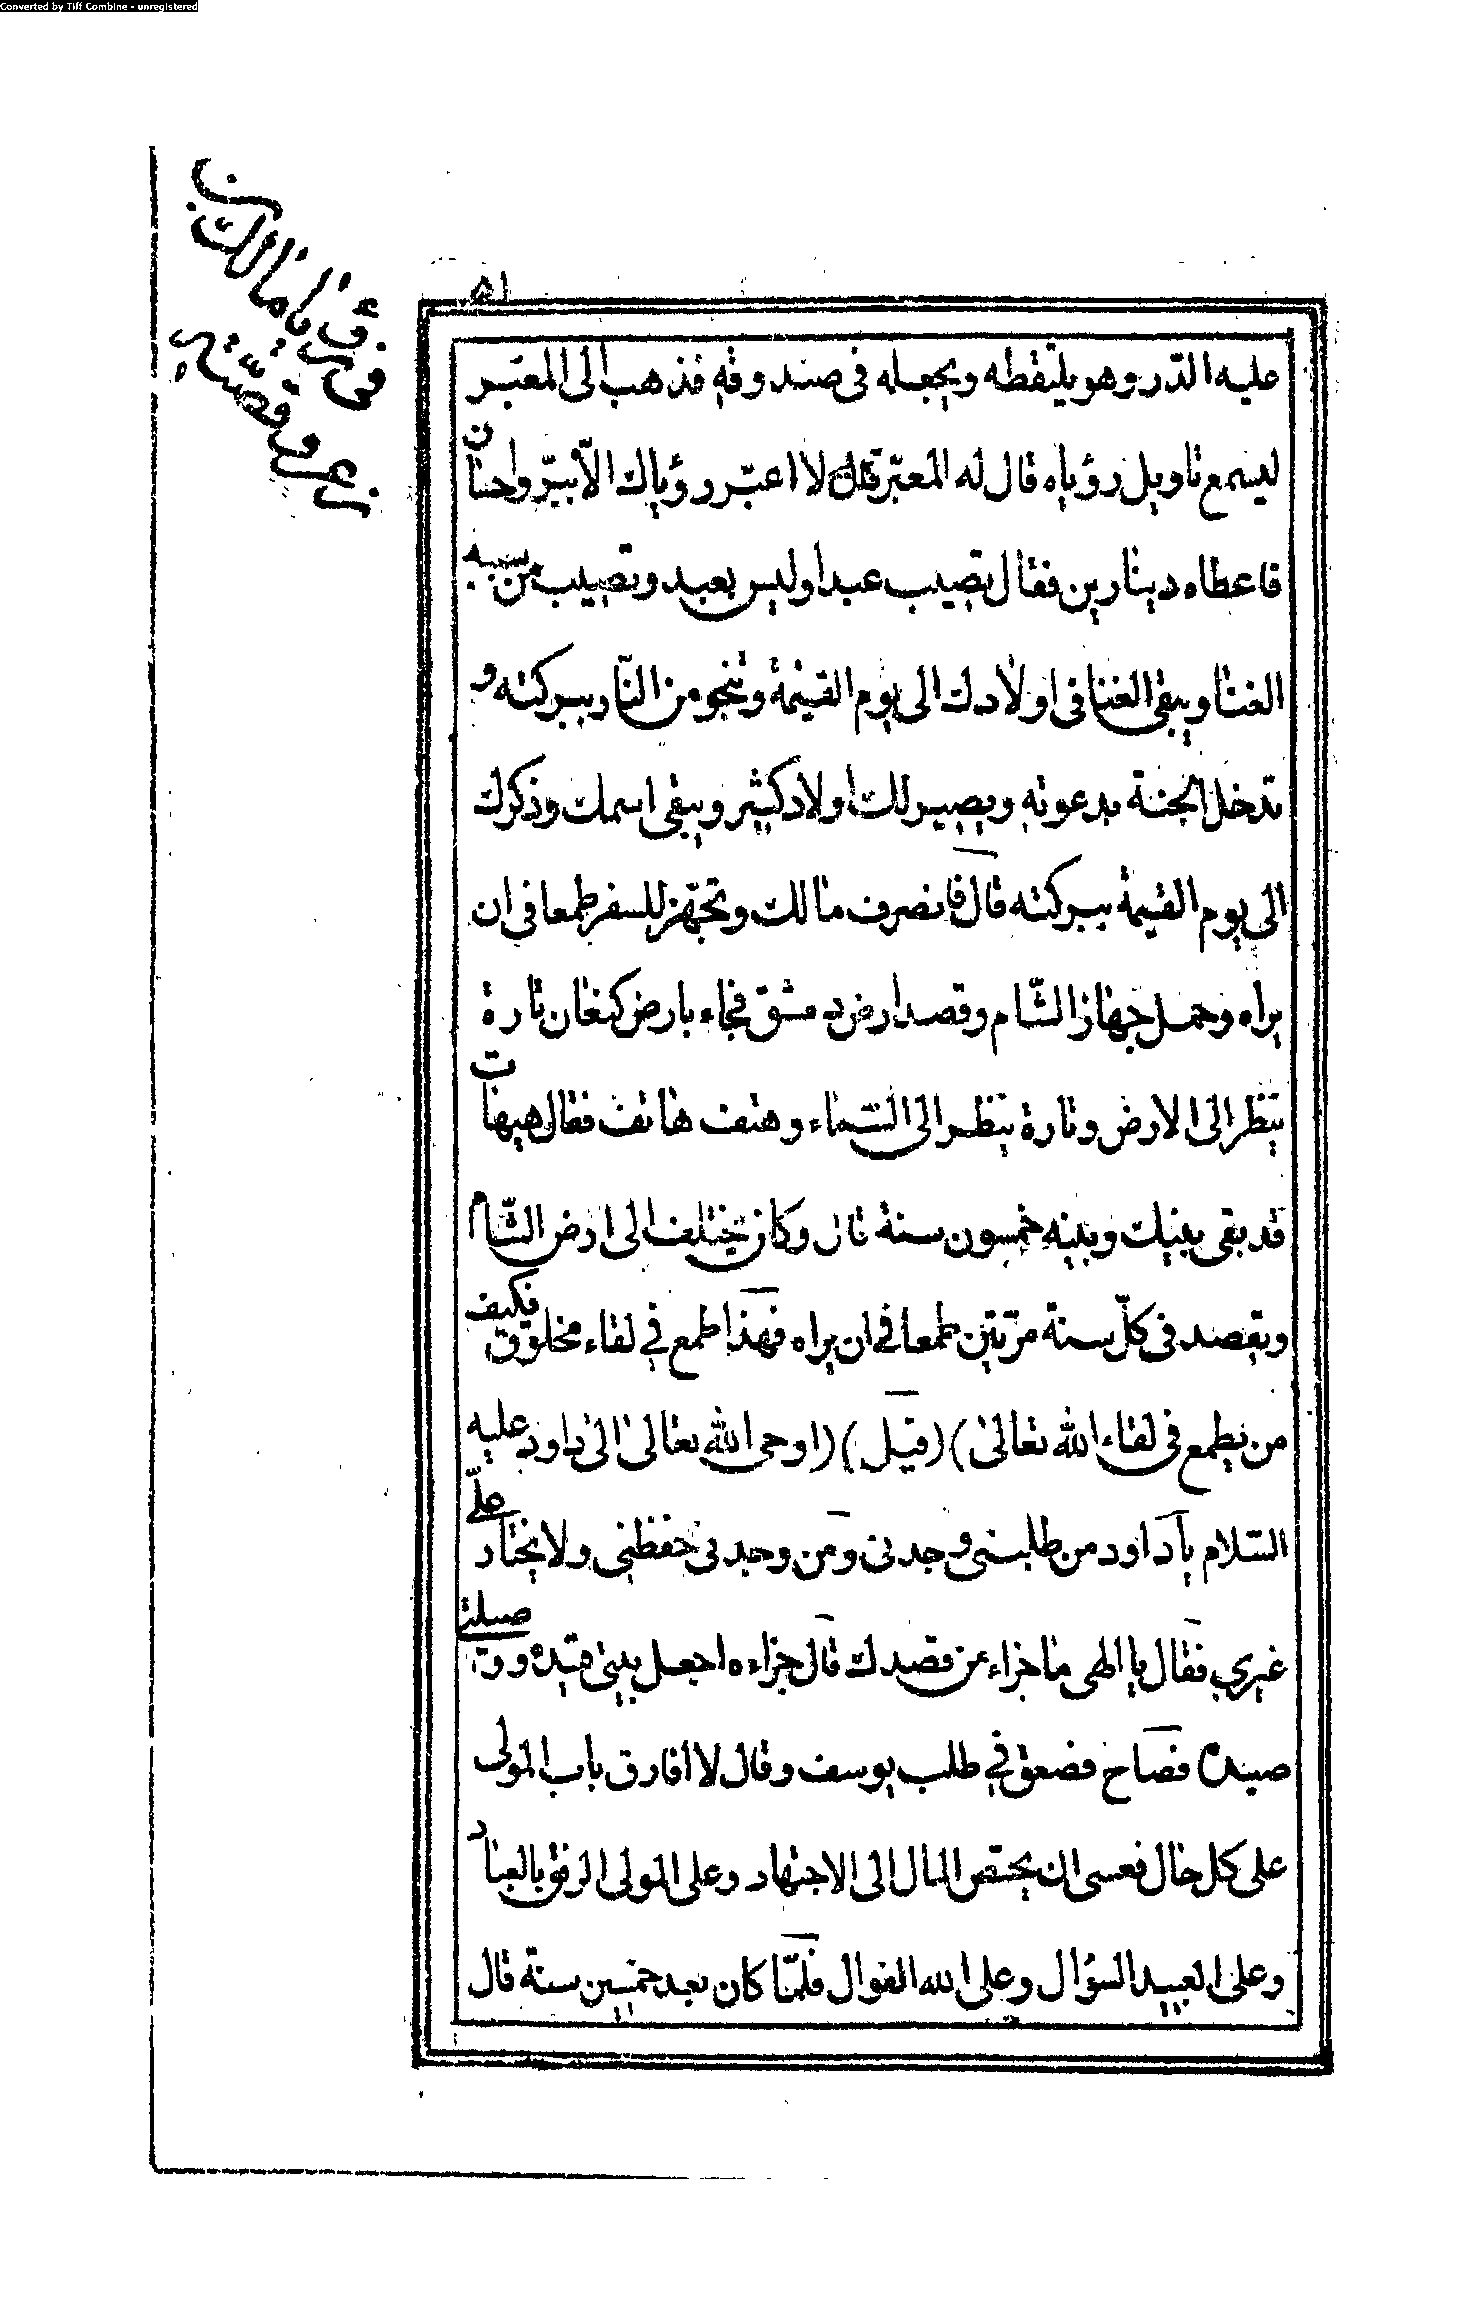 Converted by Tiff Combine - unregistered
٥١
في رؤيا مالك بن
زعر وقصته
عليه الدّر وهو يلتقطه ويجعله في صندوقه فذهب الى المعبّر
ليسمع تاويل رؤياه قال له المعبّر لا اعبّر رؤياك الّا ببرّ واحسان
فاعطاه دينارين فقال تصيب عبدا وليس بعبد وتصيب من سببه
الغنا ويبقى الغنا في اولادك الى يوم القيمة وتنجو من النّار ببركته و
تدخل الجنة بدعوته ويصير لك اولاد كثير ويبقى اسمك وذكرك
الى يوم القيمة ببركته قال فانصرف مالك وتجهّز للسفر طمعا في ان
يراه وحمل جهاز الشّام وقصد ارض دمشق فجاء بارض كنعان تارة
ينظر الى الارض وتارة ينظر الى السّماء وهتف هاتف فقال هيهات
قد بقى بينك وبينه خمسون سنة قال وكان يختلف الى ارض الشّام
ويقصد في كلّ سنة مرّتين طمعا في ان يراه فهذا طمع في لقاء مخلوق فكيف
من يطمع في لقاء الله تعالى) (قيل) (اوحى الله تعالى الى داود عليه
السّلام يا داود من طلبني وجدني ومن وجدني حفظني ولا يختار علىّ
غيري فقال يا الهى ما جزاء من قصدك قال جزاءه اجعل بيني
فصاح فصعق في طلب يوسف وقال لا افارق باب المولى
على كل حال فعسى ان يختص المال الى الاجتهاد وعلى المولى الرفق بالعباد
وعلى العبيد السؤال وعلى الله النوال فلمّا كان بعد خمسين سنة قال